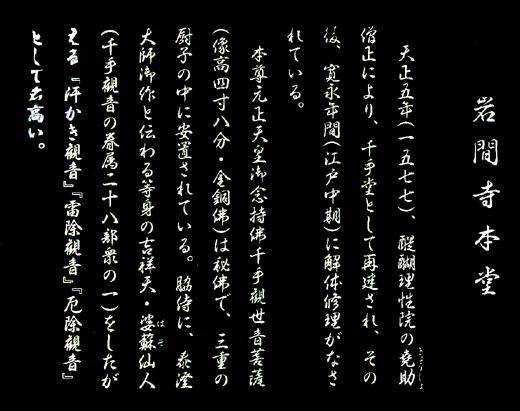 岩間寺本堂
天正五年(一五七七)、醍醐理性院の堯助
ぎょうじょ
僧正により、千手堂として再建され、その
後、寛永年間(江戸中期)に解体修理がなさ
れている。
本尊元正天皇御念持佛千手觀世音菩薩
(像高四寸八分・金銅佛)は秘佛で、三重の
厨子の中に安置されている。脇侍に、泰澄
大師御作と伝わる等身の吉祥天・婆蘇仙人
ばそ
(千手觀音の眷属二十八部衆の一)をしたが
える『汗かき觀音』『雷除觀音』『厄除觀音』
として名高い。